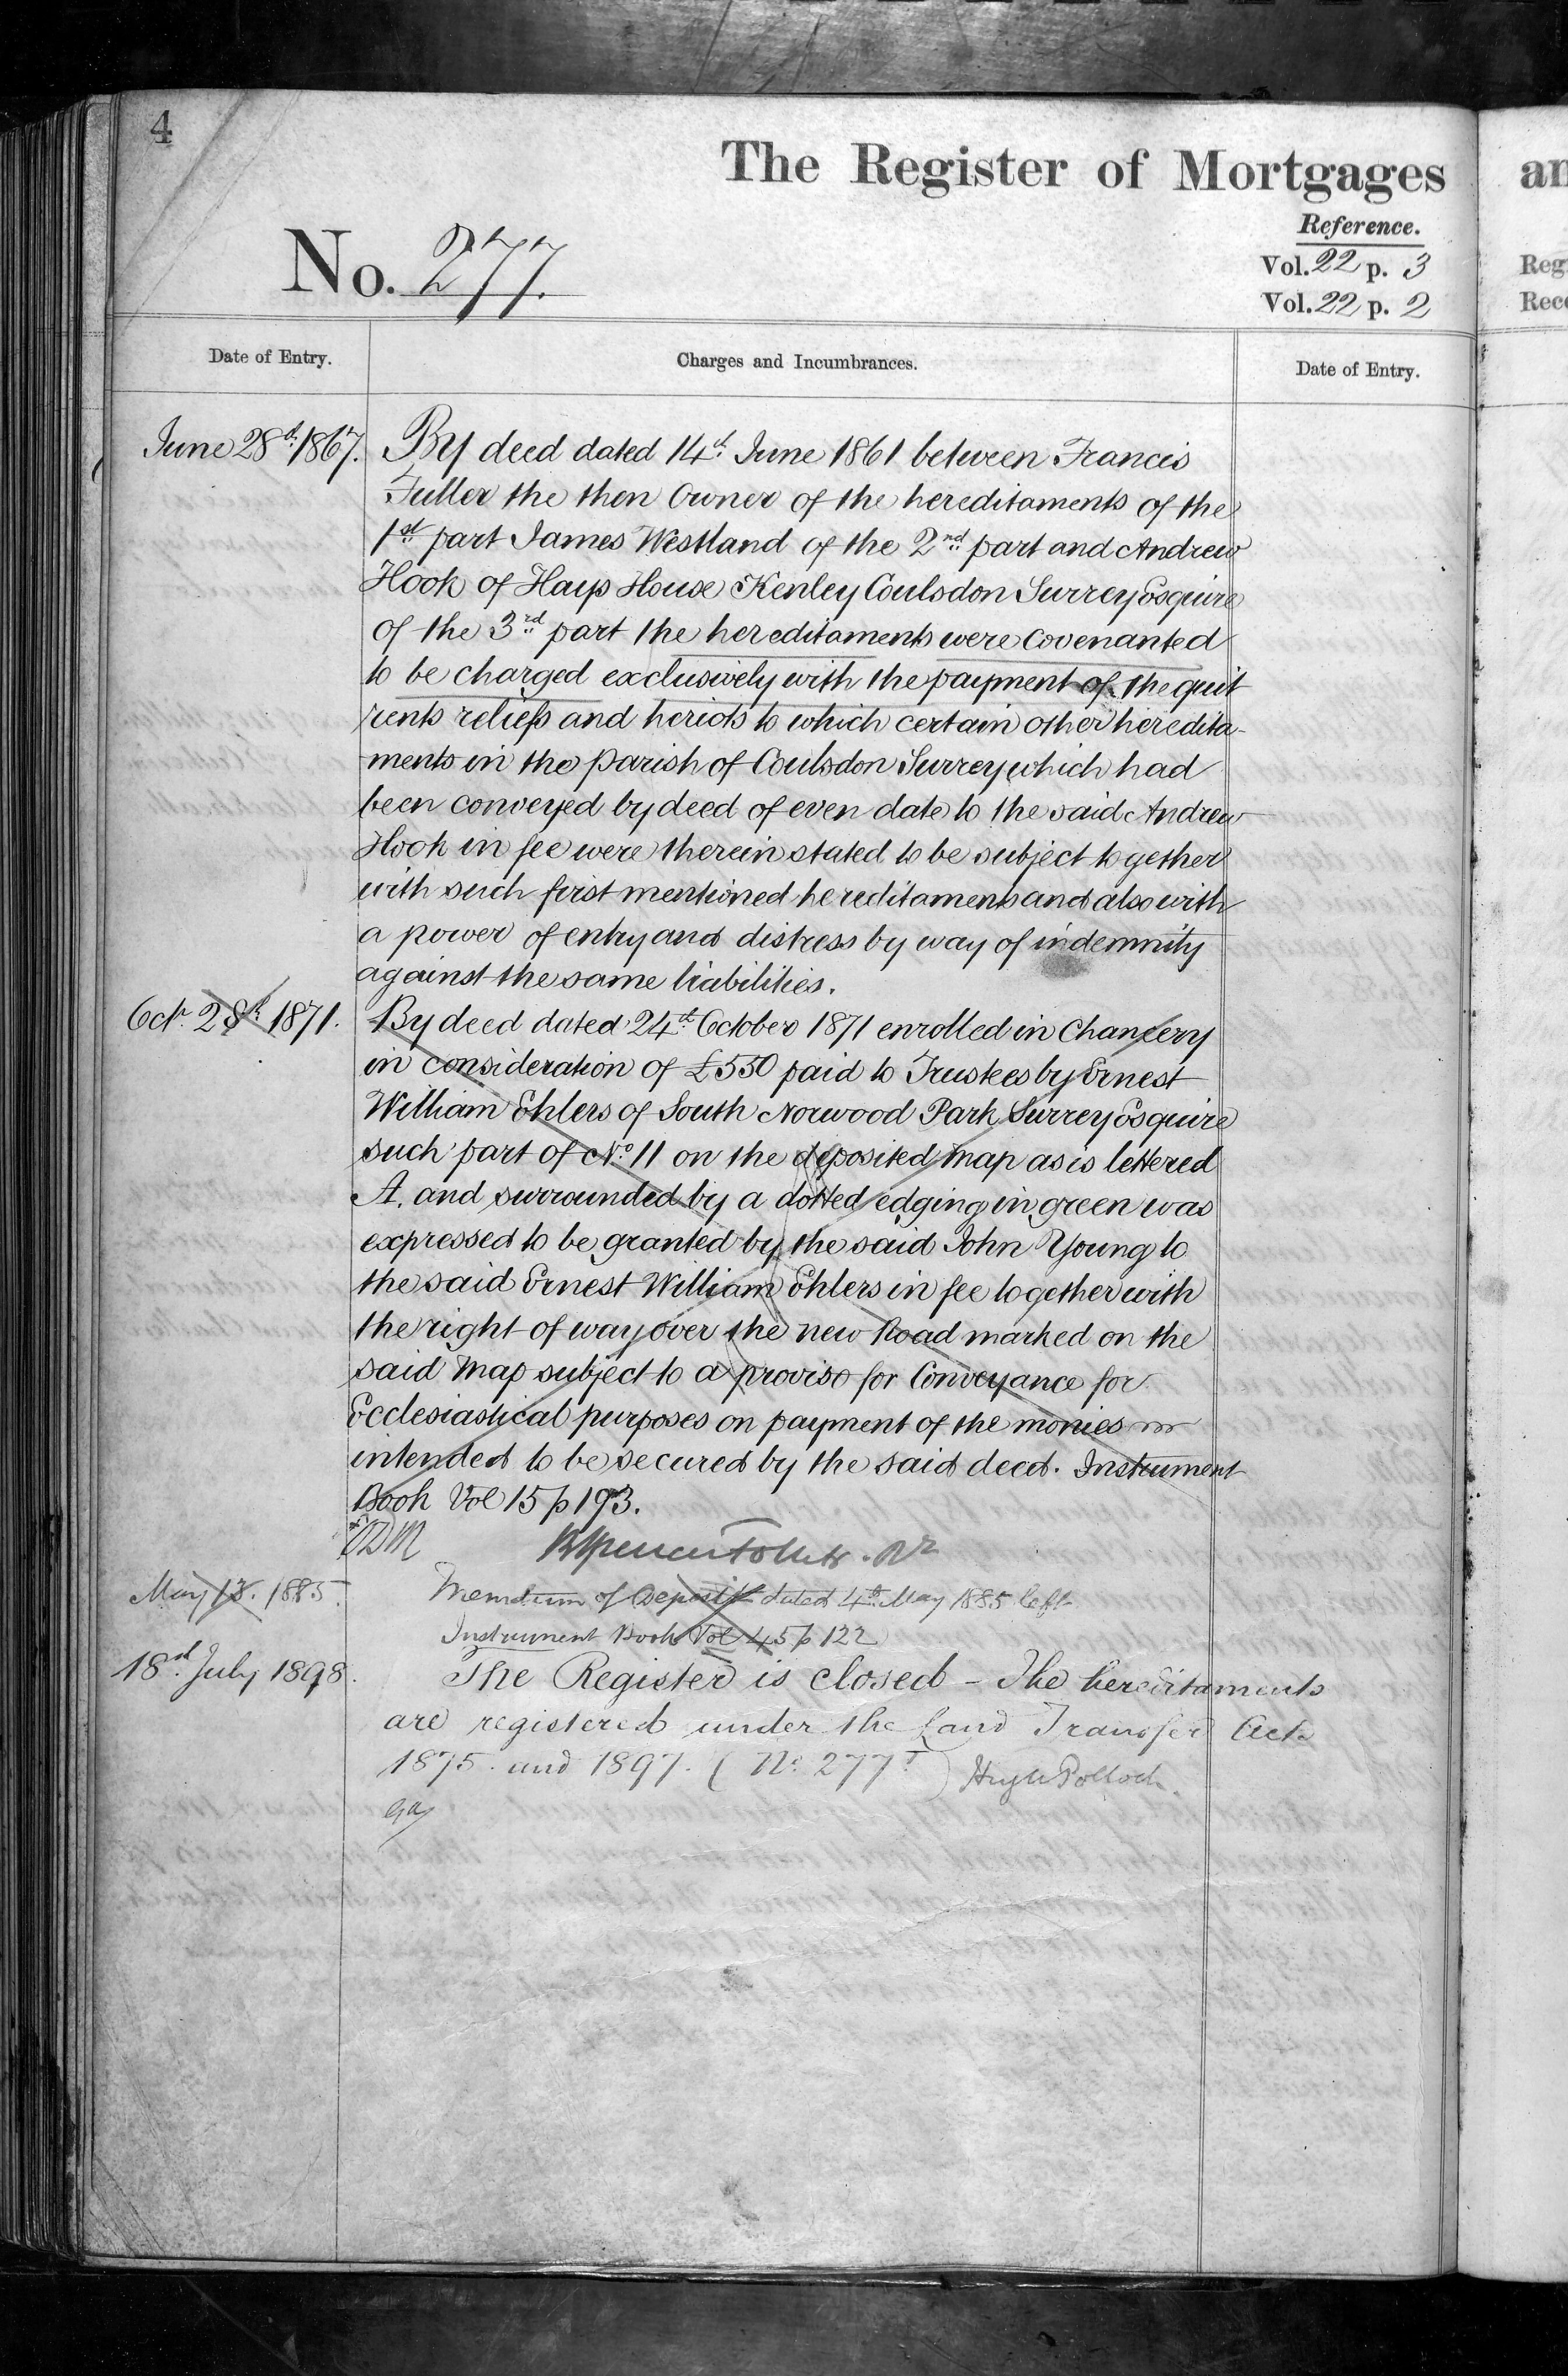 4
The Register of Mortgages
an
Reference.
No. 277.
Vol. 22 p. 3
Reg
Vol. 22 p. 2
Rec
Date of Entry.
Charges and Incumbrances.
Date of Entry.
June 28th 1867.
By deed dated 14th June 1861 between Francis
Fuller the then Owner of the hereditaments of the
1st part James Westland of the 2nd part and Andrew
Hook of Hays House Kenley Coulsdon Surrey Esquire
of the 3rd part the hereditaments were covenanted
to be charged exclusively with the payment of the quit
rents reliefs and heriots to which certain other heredita-
ments in the parish of Coulsdon Surrey which had
been conveyed by deed of even date to the said Andrew
Hook in fee were therein stated to be subject together
with such first mentioned hereditaments and also with
a power of entry and distress by way of indemnity
against the same liabilities.
Octr. 28th 1871.
By deed dated 24th October 1871 enrolled in Chancery
in consideration of £550 paid to Trustees by Ernest
William Ehlers of South Norwood Park Surrey Esquire
such part of No. 11 on the deposited map as is lettered
A. and surrounded by a dotted edging in green was
expressed to be granted by the said John Young to
the said Ernest William Ehlers in fee together with
the right of way over the new Road marked on the
said Map subject to a proviso for Conveyance for
Ecclesiastical purposes on payment of the monies
intended to be secured by the said deed. Instrument
Book Vol 15 p 193.
May 13. 1885.
Memdum of Deposit dated 4th May 1885 left
Instrument Book Vol 45 p 122
18st July 1898.
The Register is closed - The hereditaments
are registered under the Land Transfer Acts
1875 and 1897. (No. 277T) Hugh Pollock.